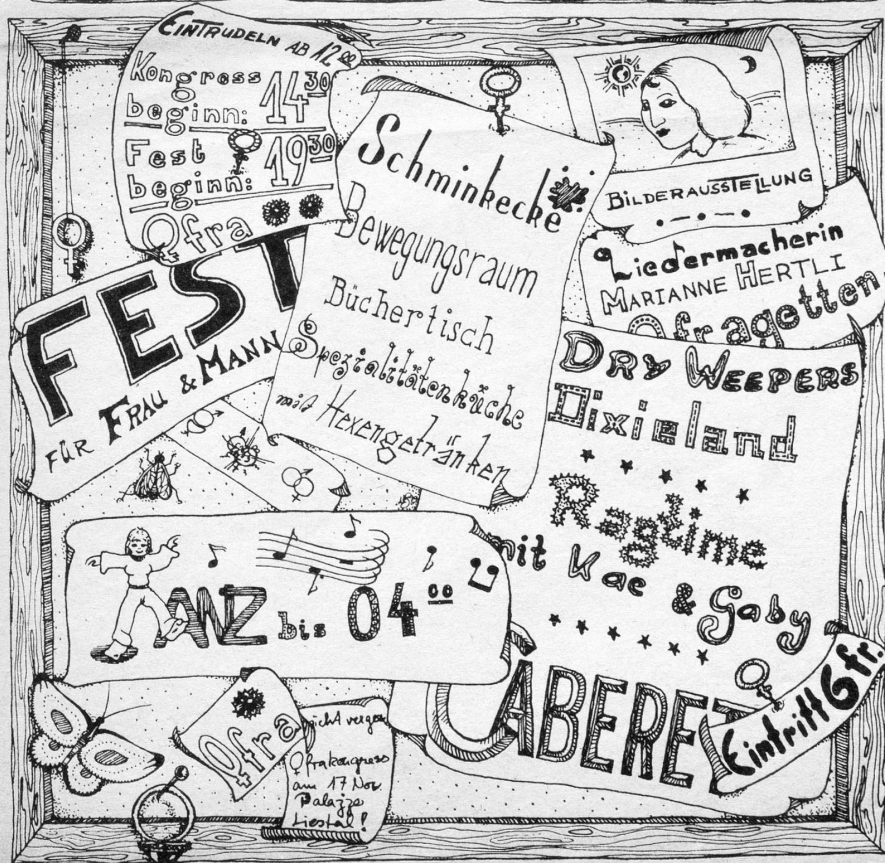 EINTRUDELN AB 12.00
Kongress
beginn: 14 30
Fest
beginn: 19 30
Ofra
Schminkecke
Bewegungsraum
Büchertisch
Spezialitätenküche
mit Hexengetränken
BILDERAUSSTELLUNG
Liedermacherin
MARIANNE HERTLI
Ofragetten
FEST
FÜR FRAU & MANN
DRY WEEPERS
Dixieland
Ragtime
mit Kae & Gaby
CABERET
Eintritt 6 fr.
TANZ bis 04 00
Ofra
nicht verges
Ofrakongress
am 17 Nov.
Palazzo
Liestal!